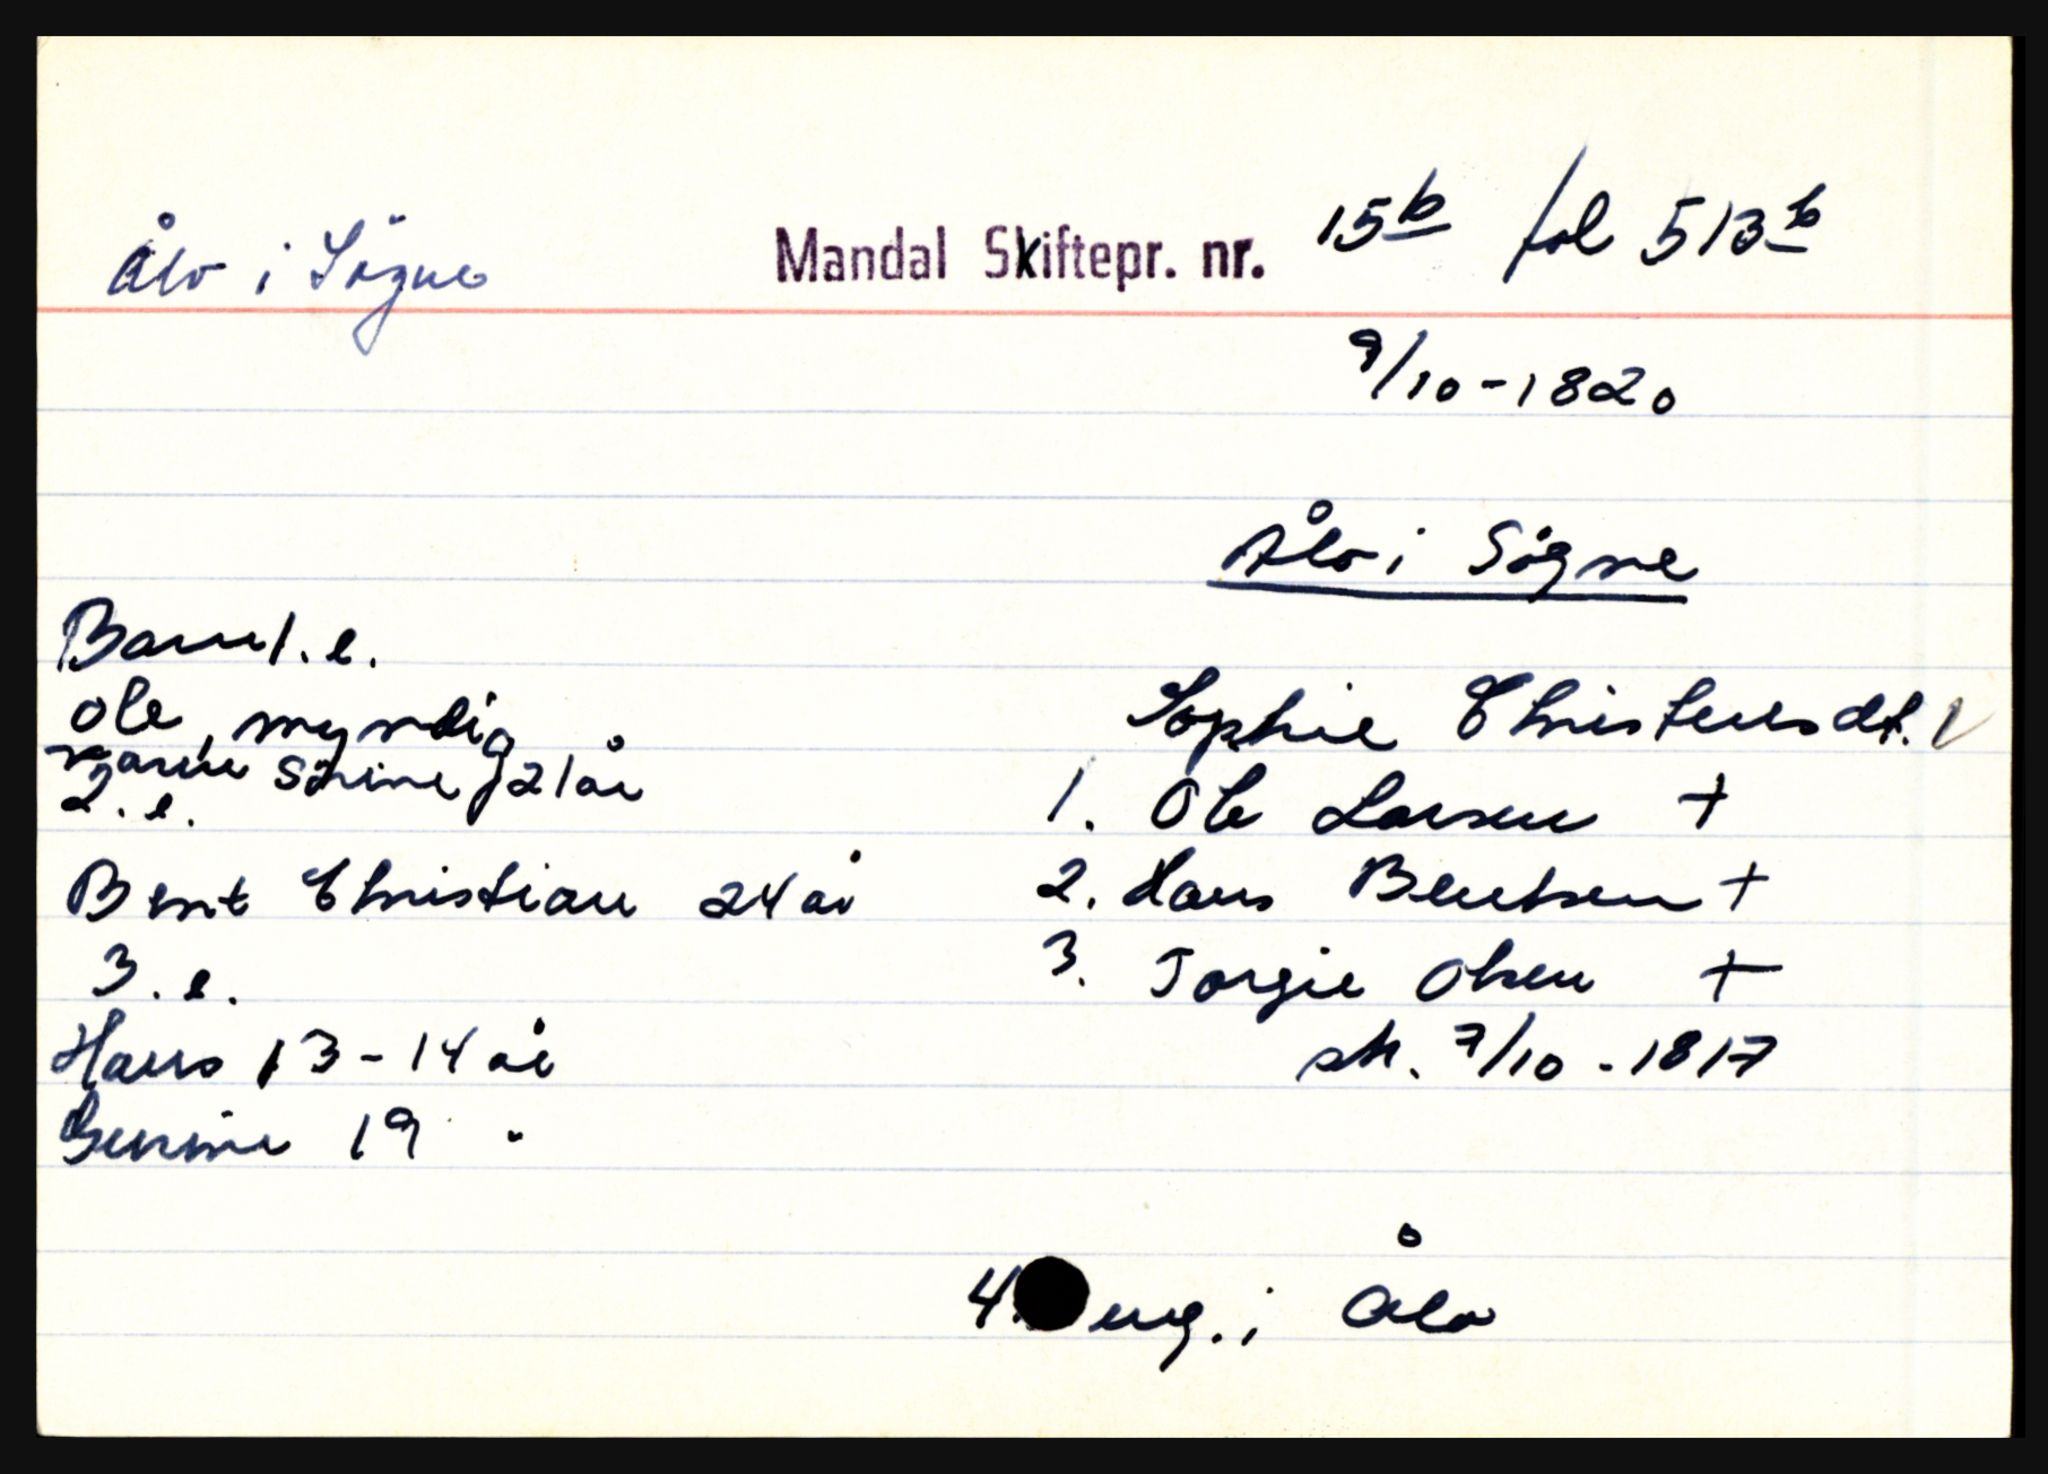 Ålo i Søgne
Mandal Skiftepr. nr. 15b fol 513b
9/10-1820
Ålo i Søgne
Barn 1. e.
Ole, myndig
Karen Serine 21 år
2. e.
Bent Christian 24 år
3. e.
Hans 13-14 år
Gunine 19 "
Sophie Christensdt.
1. Ole Larsen +
2. Hans Bentsen +
3. Torgie Olsen +
sk. 7/10-1817
4. eng. i Ålo